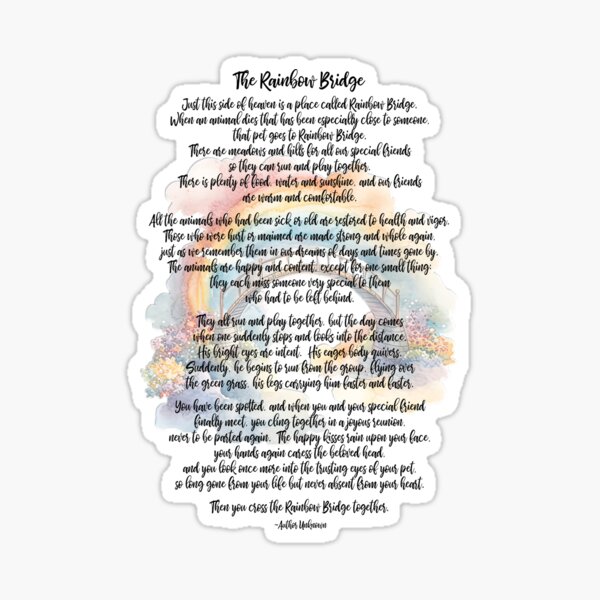 The Rainbow Bridge
Just this side of heaven is a place called Rainbow Bridge.
When an animal dies that has been especially close to someone,
that pet goes to Rainbow Bridge.
There are meadows and hills for all our special friends
so they can run and play together.
There is plenty of food, water and sunshine, and our friends
are warm and comfortable.
All the animals who had been sick or old are restored to health and vigor.
Those who were hurt or maimed are made strong and whole again,
just as we remember them in our dreams of days and times gone by.
The animals are happy and content, except for one small thing:
they each miss someone very special to them
who had to be left behind.
They all run and play together, but the day comes
when one suddenly stops and looks into the distance.
His bright eyes are intent. His eager body quivers.
Suddenly, he begins to run from the group, flying over
the green grass, his legs carrying him faster and faster.
You have been spotted, and when you and your special friend
finally meet, you cling together in a joyous reunion,
never to be parted again. The happy kisses rain upon your face,
your hands again caress the beloved head,
and you look once more into the trusting eyes of your pet,
so long gone from your life but never absent from your heart.
Then you cross the Rainbow Bridge together.
~Author Unknown